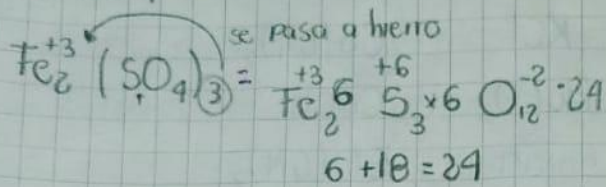 se pasa a hierro
Fe₂⁺³ (SO₄)₃ = Fe₂⁺³ 6 S₃⁺⁶ x6 O₁₂⁻² · 24
6 + 18 = 24